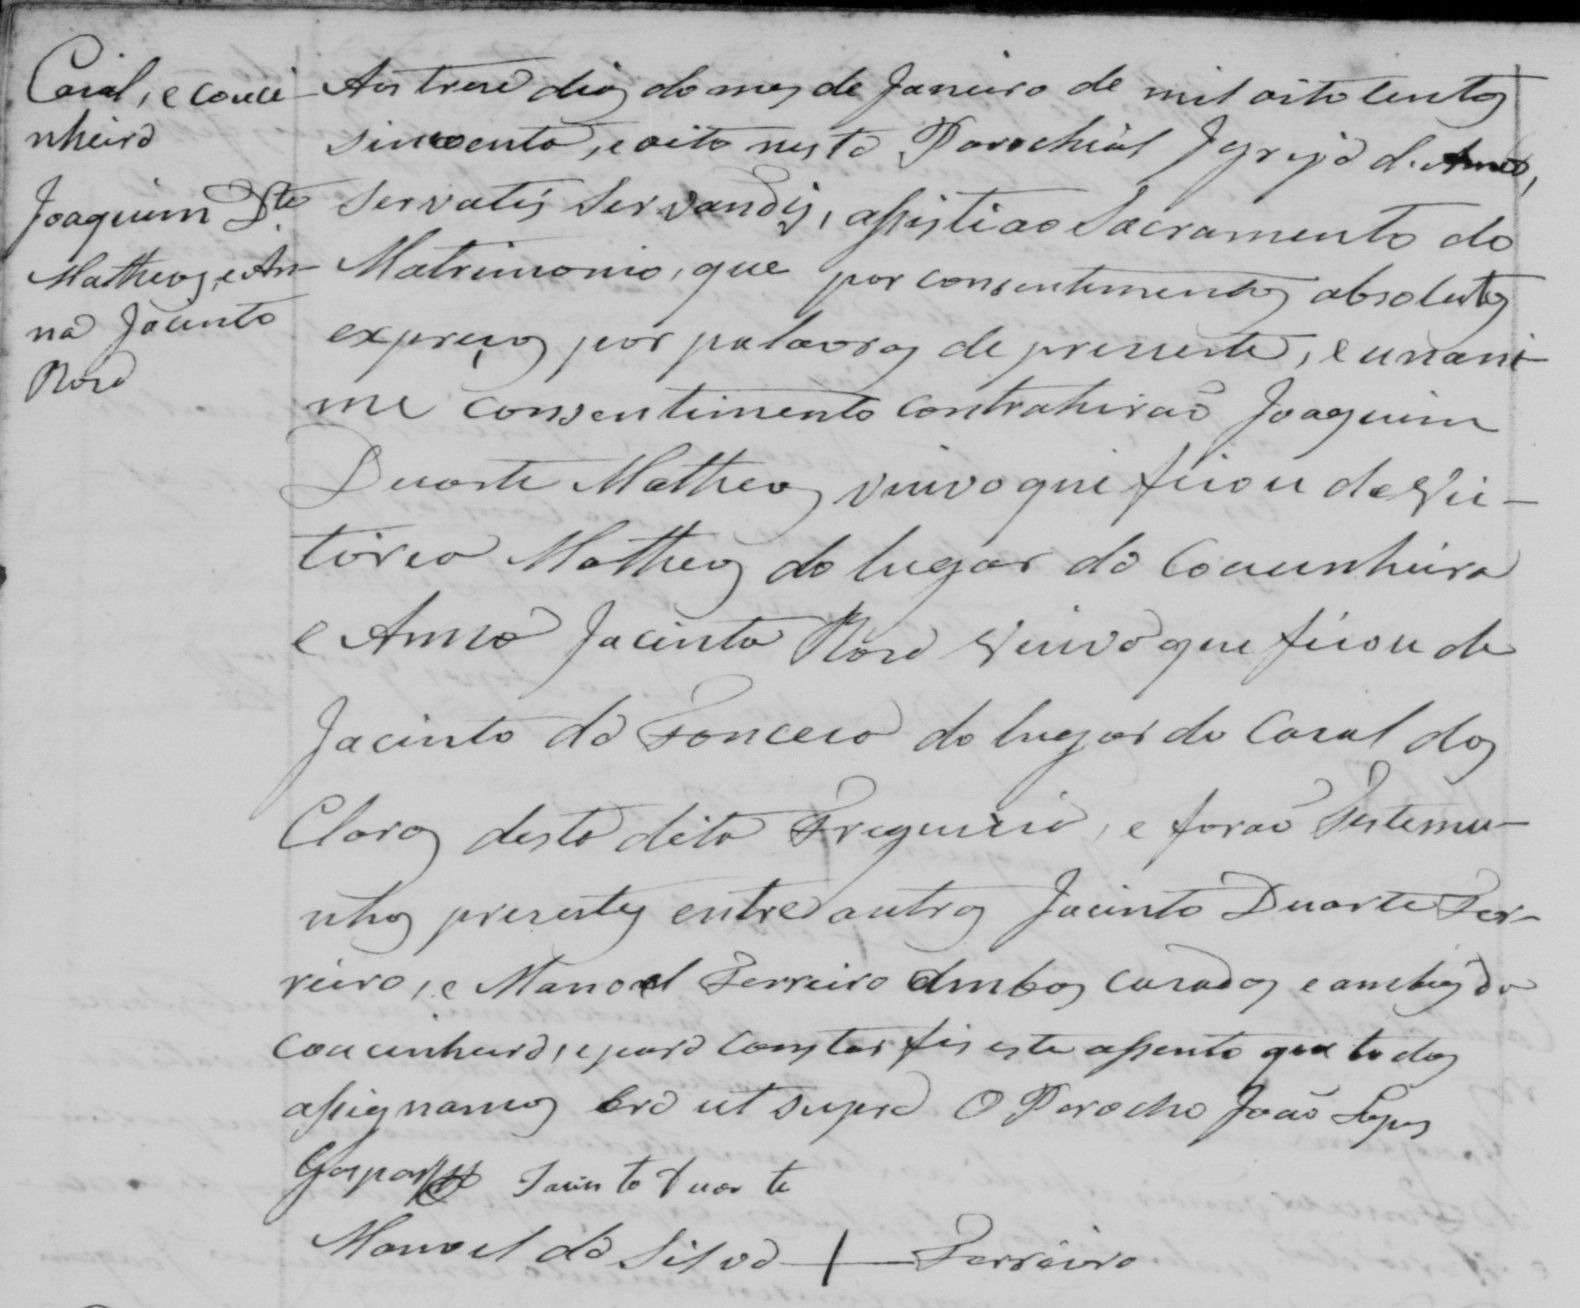 Casal, e couci
nheira
Joaquim D.te
Matheos, e An-
na Jacinta
Rosa
Aos treze dias do mes de Janeiro de mil oito centos
sincoenta, e oito nesta Parochial Igreja d.
Servatis Servandis, assisti ao Sacramento do
Matrimonio, que por consentimentos absolutos
expreços por palavras de prezente, e unani-
me consentimento contrahirão Joaquim
Duarte Matheos viuvo que ficou de Vic-
toria Matheos do lugar da Coucinheira
e Anna Jacinta Rosa Viuva que ficou de
Jacinto da Fonceca do lugar do Casal dos
Claros desta dita Freguezia, e forão Testemu-
nhas prezentes entre outros Jacinto Duarte Fer-
reiro, e Manoel Ferreiro ambos cazados e ambos da
coucinheira, e para constar fis este assento que todos
assignamos Era ut supra O Parocho João Lopes
Gaspar Jacinto Duarte
Manoel da Silva + Ferreiro